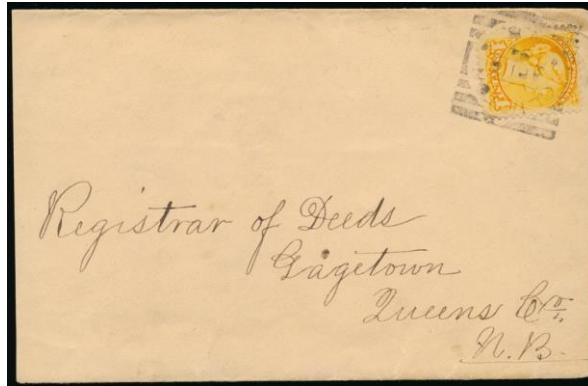 Registrar of Deeds
Gagetown
Queens Co.
N.B.